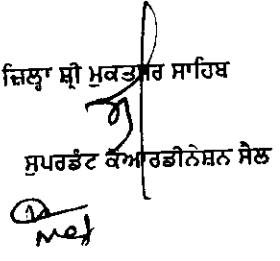 ਜ਼ਿਲ੍ਹਾ ਸ਼੍ਰੀ ਮੁਕਤਸਰ ਸਾਹਿਬ
ਸੁਪਰਡੰਟ ਕੋਆਰਡੀਨੇਸ਼ਨ ਸੈਲ